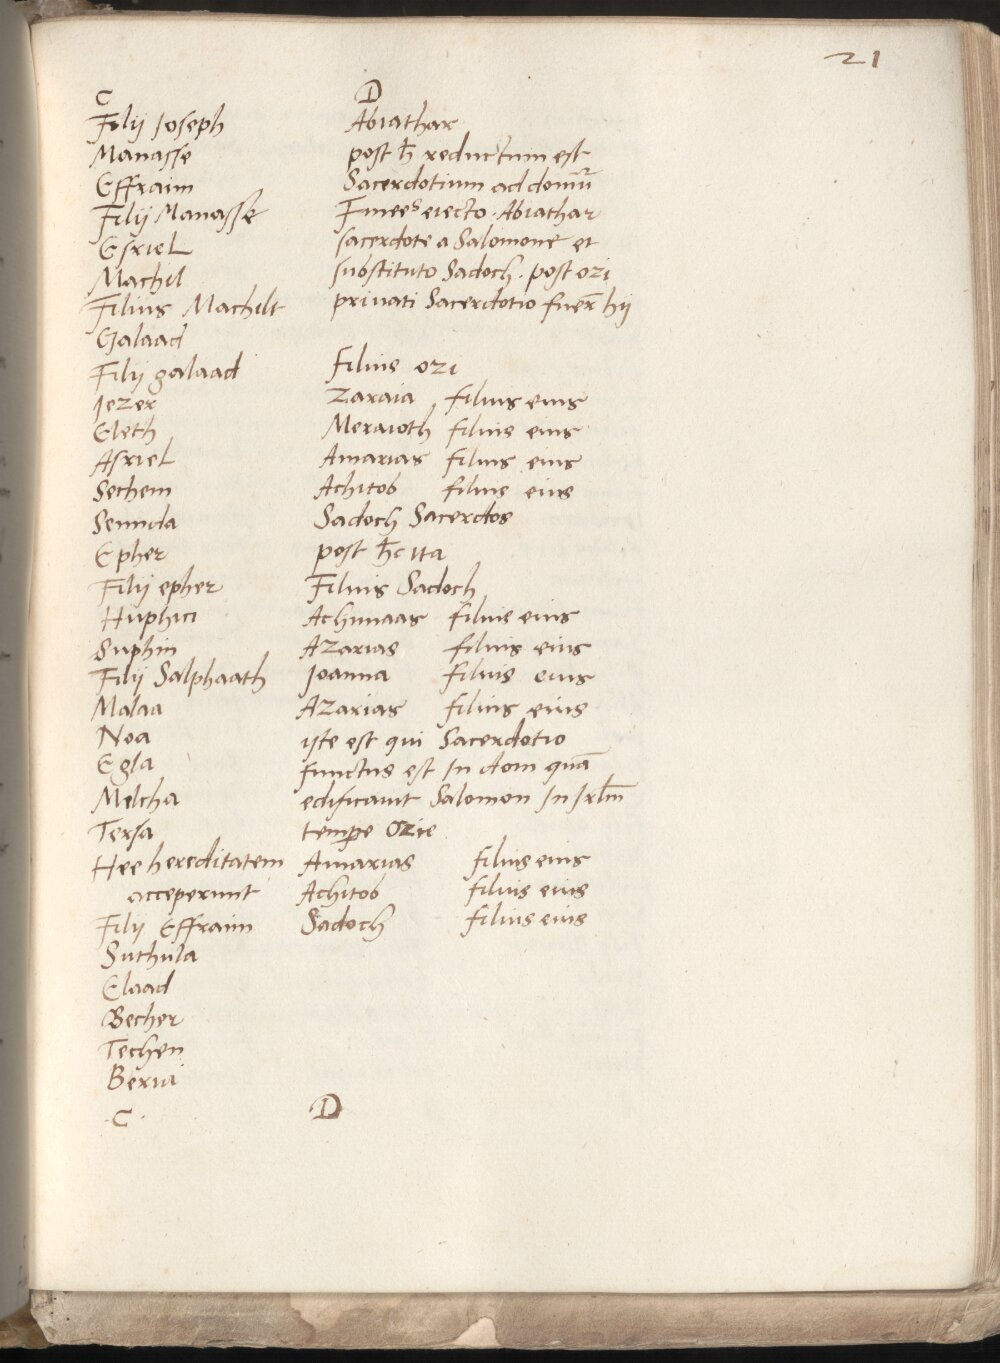 21
C
Filij Joseph
Manasse
Effraim
Filij Manasse
Esriel
Machil
Filius Machilt
Galaad
Filij galaad
Jezer
Eleth
Asriel
Sechem
Semida
Epher
Filij epher
Huphin
Suphin
Filij Salphaath
Malaa
Noa
Egla
Melcha
Tersa
Hee hereditatem
acceperunt
Filij Effraim
Suthula
Elaad
Becher
Techen
Beriai
.C.
D
Abiathar
post h̄ reductum est
Sacerdotium ad domū
Finees eiecto. Abiathar
sacerdote a Salomone et
substituto Sadoch. post ozi
priuati Sacerdotio fuer̄ hij
filius ozi
Zaraia filius eius
Meraioth filius eius
Amarias filius eius
Achitob filius eius
Sadoch Sacerdos
post h̄c ita
Filius Sadoch
Achimaas filius eius
Azarias filius eius
Joanna filius eius
Azarias filius eius
iste est qui Sacerdotio
functus est In dom quā
edificauit Salomon In Jrlm̄
tempe Ozie
Amarias filius eius
Achitob filius eius
Sadoch filius eius
D